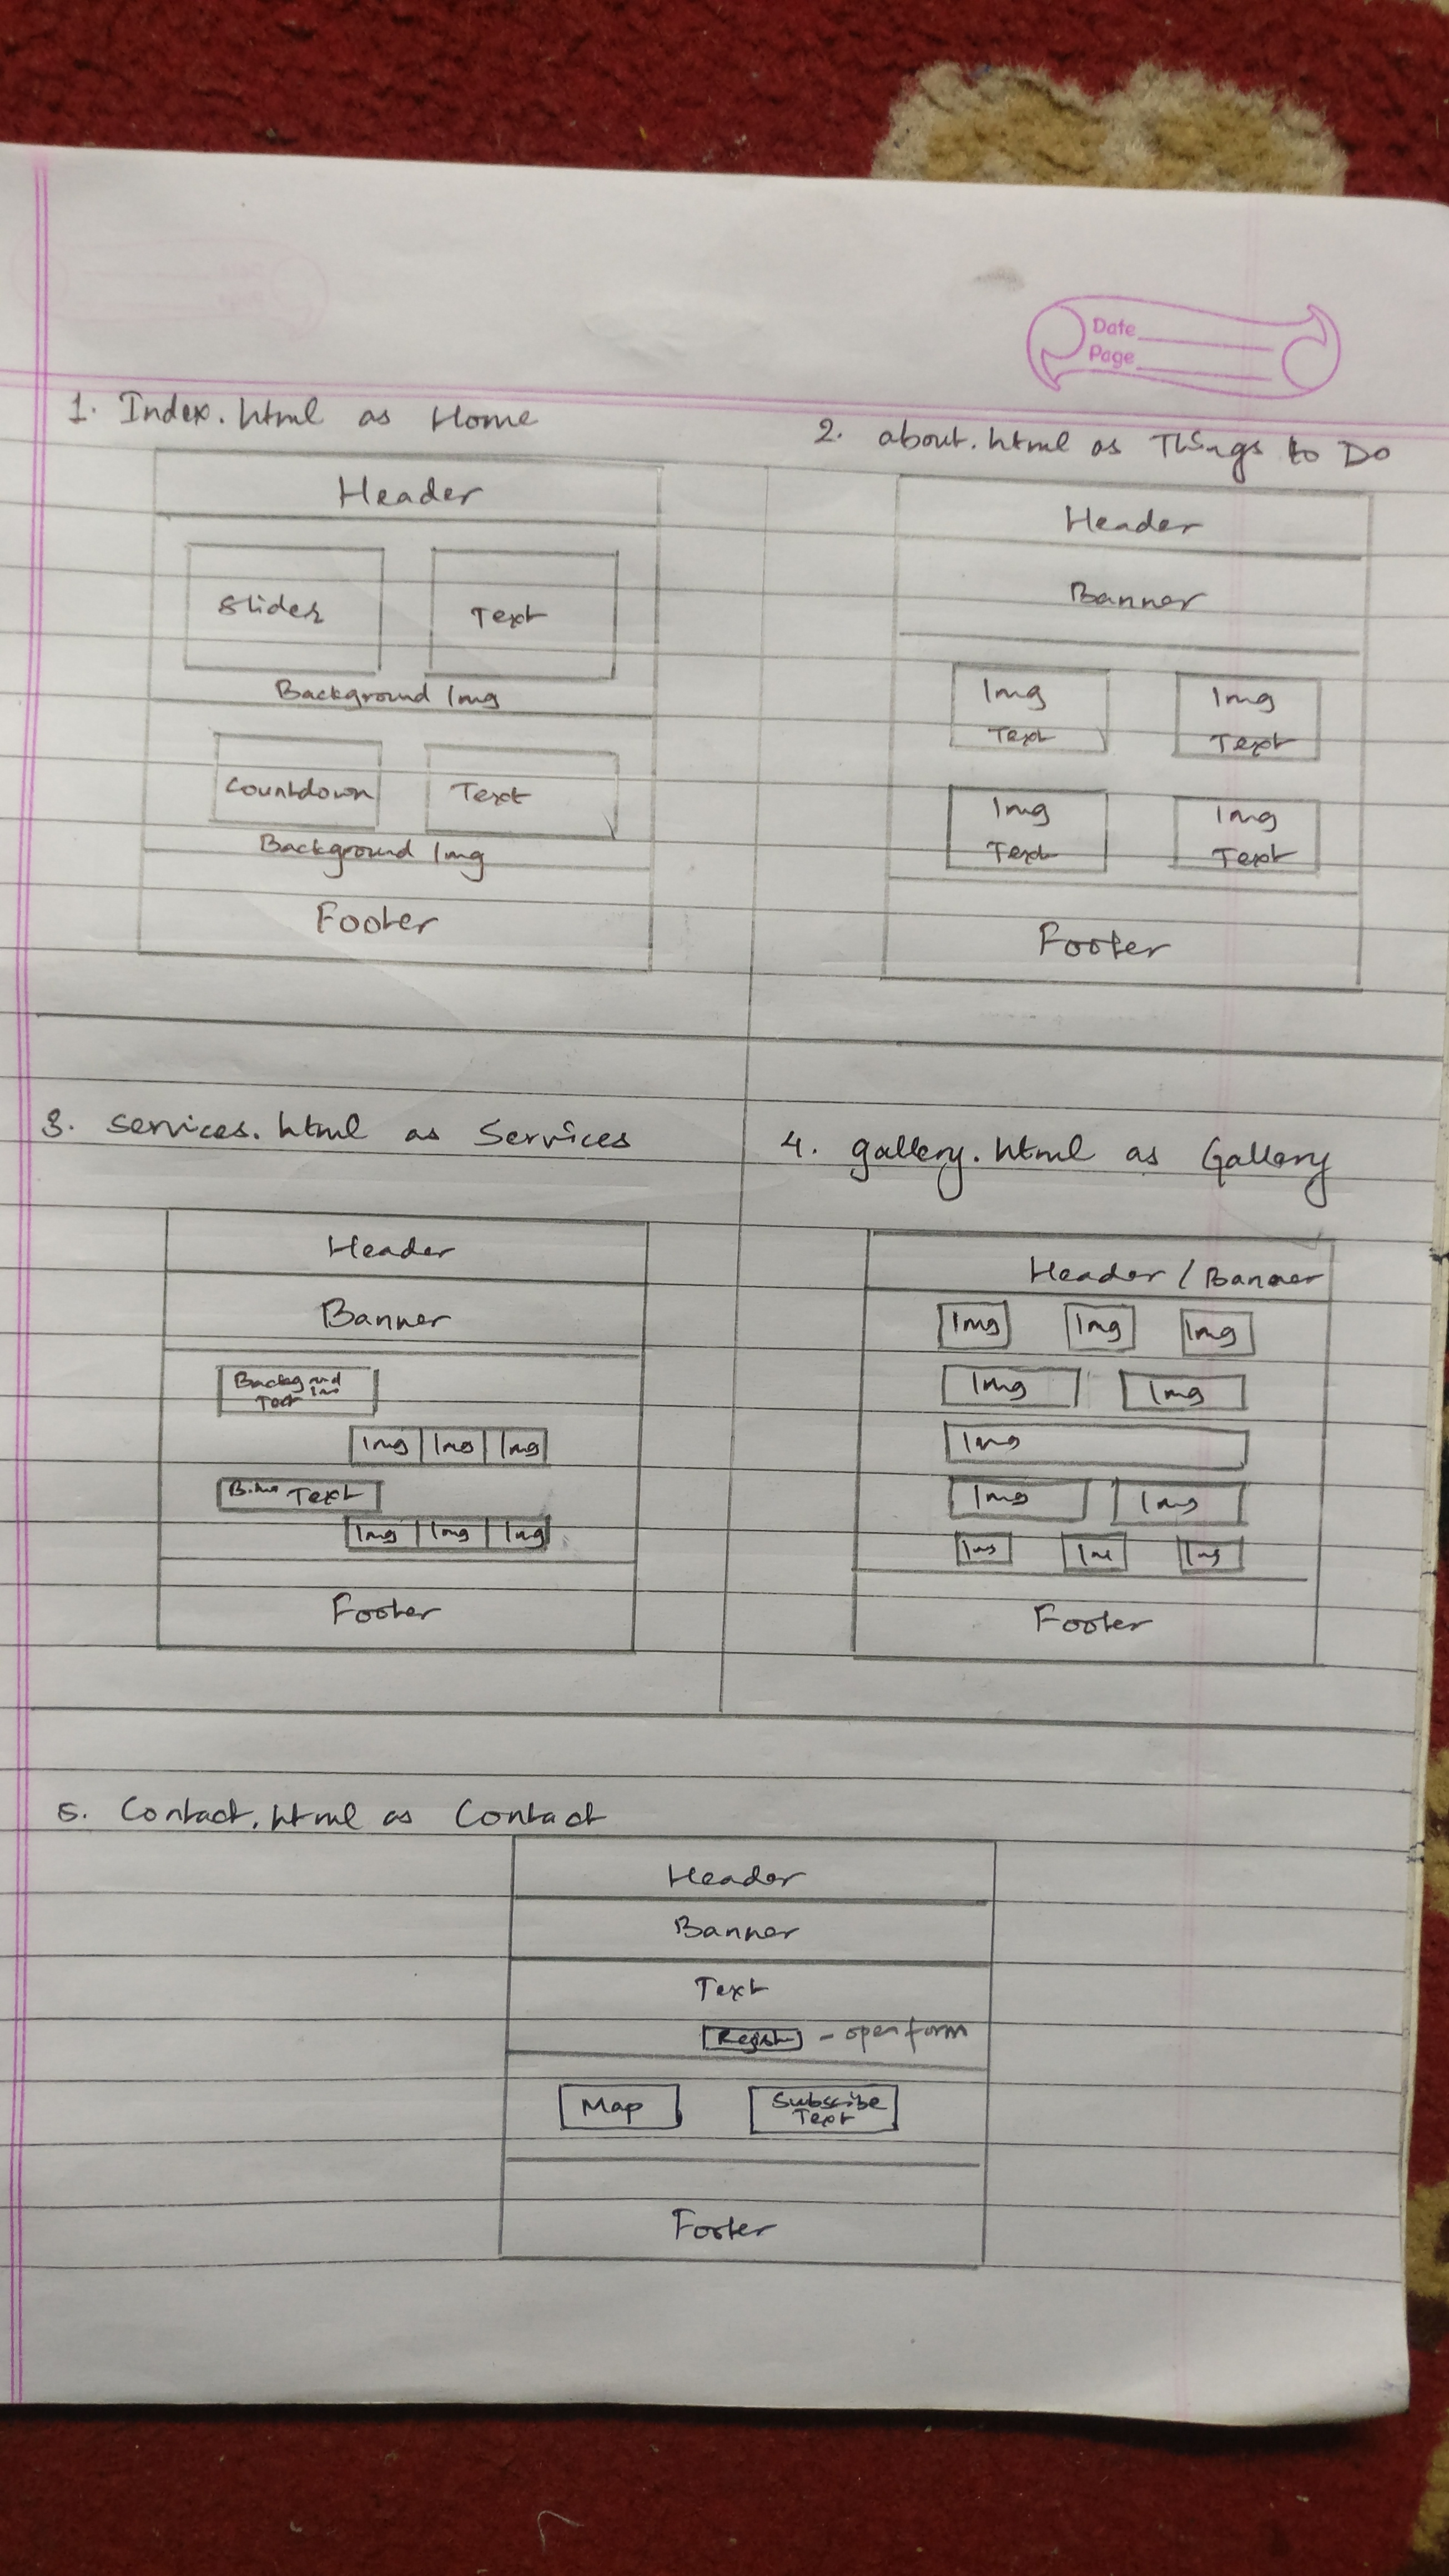 Date
Page
1. Index.html as Home
Header
Slider
Text
Background Img
Countdown
Text
Background Img
Footer
2. about.html as Things to Do
Header
Banner
Img
Text
Img
Text
Img
Text
Img
Text
Footer
3. Services.html as Services
Header
Banner
Text
Img Img Img
Text
Img Img Img
Footer
4. gallery.html as Gallery
Header / Banner
Img Img Img
Img Img
Img
Img Img
Img Img Img
Footer
5. Contact.html as Contact
Header
Banner
Text
Register - open form
Map
Subscribe
Text
Footer